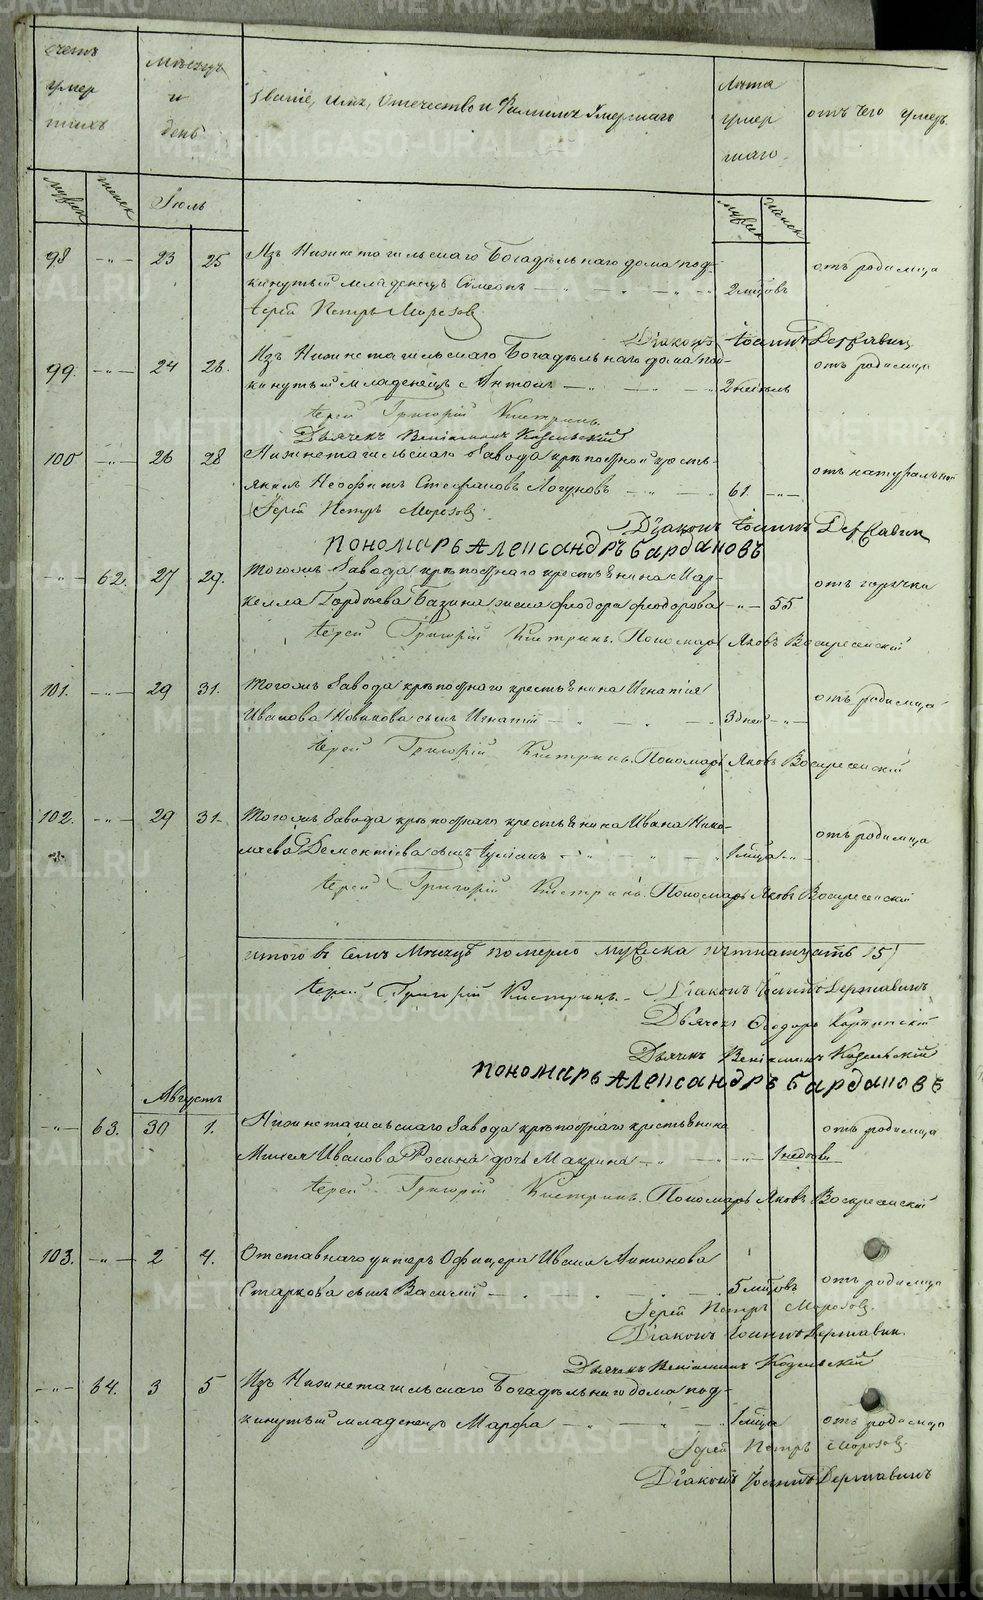 счетъ умершихъ
Мѣсяцъ и день
Званіе, Имя, Отечество и Фамилія Умершаго
Лѣта умершаго
отъ чего умеръ
мужск женск
Іюль
мужск женск
98 -"- 23 25 Изъ Нижнетагильскаго Богадѣльнаго дома под- отъ родимца
кинутый младенецъ Симеонъ 2 мцовъ
Іерей Петръ Морозовъ
Діаконъ Іоаннъ Державинъ
99. -"- 24 26. Изъ Нижнетагильскаго Богадѣльнаго дома под- отъ родимца
кинутый младенецъ Антонъ 2 недѣль
Іерей Григорій
Дьячекъ Веніаминъ Козельскій
100 -"- 26 28 Нижнетагильскаго Завода крѣпостной кресть- отъ натуральной
янинъ Неофитъ Стефановъ Логуновъ 61. -"-
Іерей Петръ Морозовъ
Діаконъ Іоаннъ Державинъ
Пономарь Александръ Бардановъ
-"- 62. 27 29. Тогожъ Завода крѣпостнаго крестьянина Мар- отъ горячки
келла Гордѣева Базина жена Феодора Феодорова -"- 55
Іерей Григорій Пономарь Яковъ Воскресенскій
101. -"- 29 31. Тогожъ Завода крѣпостнаго крестьянина Игнатія отъ родимца
Иванова Новикова сынъ Игнатій 3 дней -"-
Іерей Григорій Пономарь Яковъ Воскресенскій
102. -"- 29 31. Тогожъ Завода крѣпостнаго крестьянина Ивана Нико- отъ родимца
лаева Дементіева сынъ Іуліанъ 1 мца -"-
Іерей Григорій Пономарь Яковъ Воскресенскій
итого въ семъ Мѣсяцѣ померло мужеска пятнатцать 15/
Іерей Григорій Діаконъ Іоаннъ Державинъ
Дьячекъ Феодоръ
Дьячекъ Веніаминъ Козельскій
Пономарь Александръ Бардановъ
Августъ
-"- 63. 30 1. Нижнетагильскаго Завода крѣпостнаго крестьянина отъ родимца
Иванова дочь Макрина 1 недѣли
Іерей Григорій Пономарь Яковъ Воскресенскій
103. -"- 2 4. Отставнаго унтеръ Офицера Ивана Антонова
Старкова сынъ Василій 5 мцовъ отъ родимца
Іерей Петръ Морозовъ.
Діаконъ Іоаннъ Державинъ.
Дьячекъ Веніаминъ Козельскій
-"- 64. 3 5 Изъ Нижнетагильскаго Богадѣльнаго дома под-
кинутый младенецъ Марфа 1 мца отъ родимца
Іерей Петръ Морозовъ.
Діаконъ Іоаннъ Державинъ
METRIKI.GASO-URAL.RU